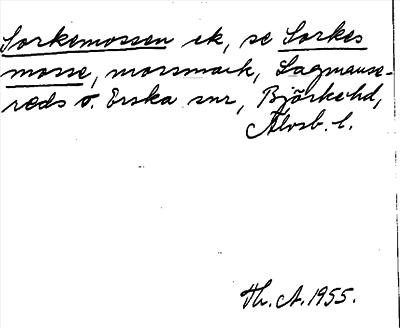 Sorkemossen ek, se Sorkes
mosse, mossmark, Lagmanse-
reds o. Erska snr, Björkehd,
Älvsb. l.
Th. A. 1955.